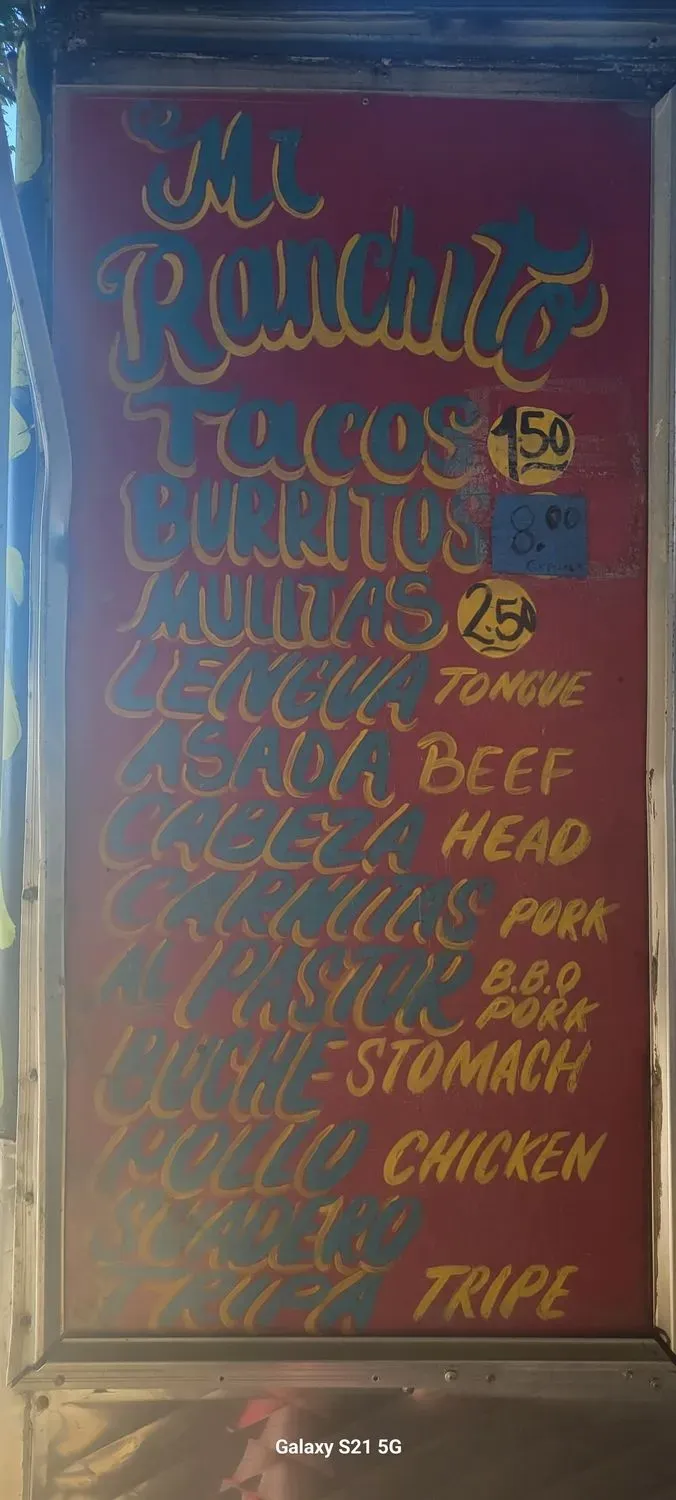 Mi
Ranchito
Tacos 1.50
BURRITOS 8.00
MULITAS 2.50
LENGUA TONGUE
ASADA BEEF
CABEZA HEAD
CARNITAS PORK
AL PASTOR B.B.Q PORK
BUCHE STOMACH
POLLO CHICKEN
SUADERO
TRIPA TRIPE
Galaxy S21 5G